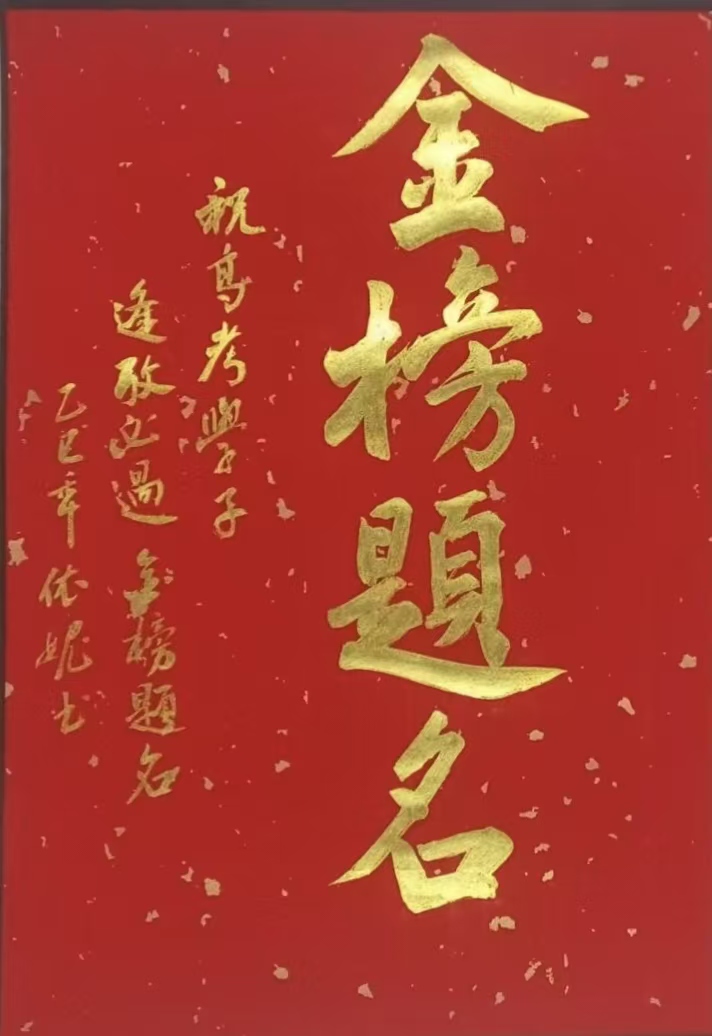 金榜題名
祝高考學子
逢攷必過 金榜題名
乙巳年 依妮书